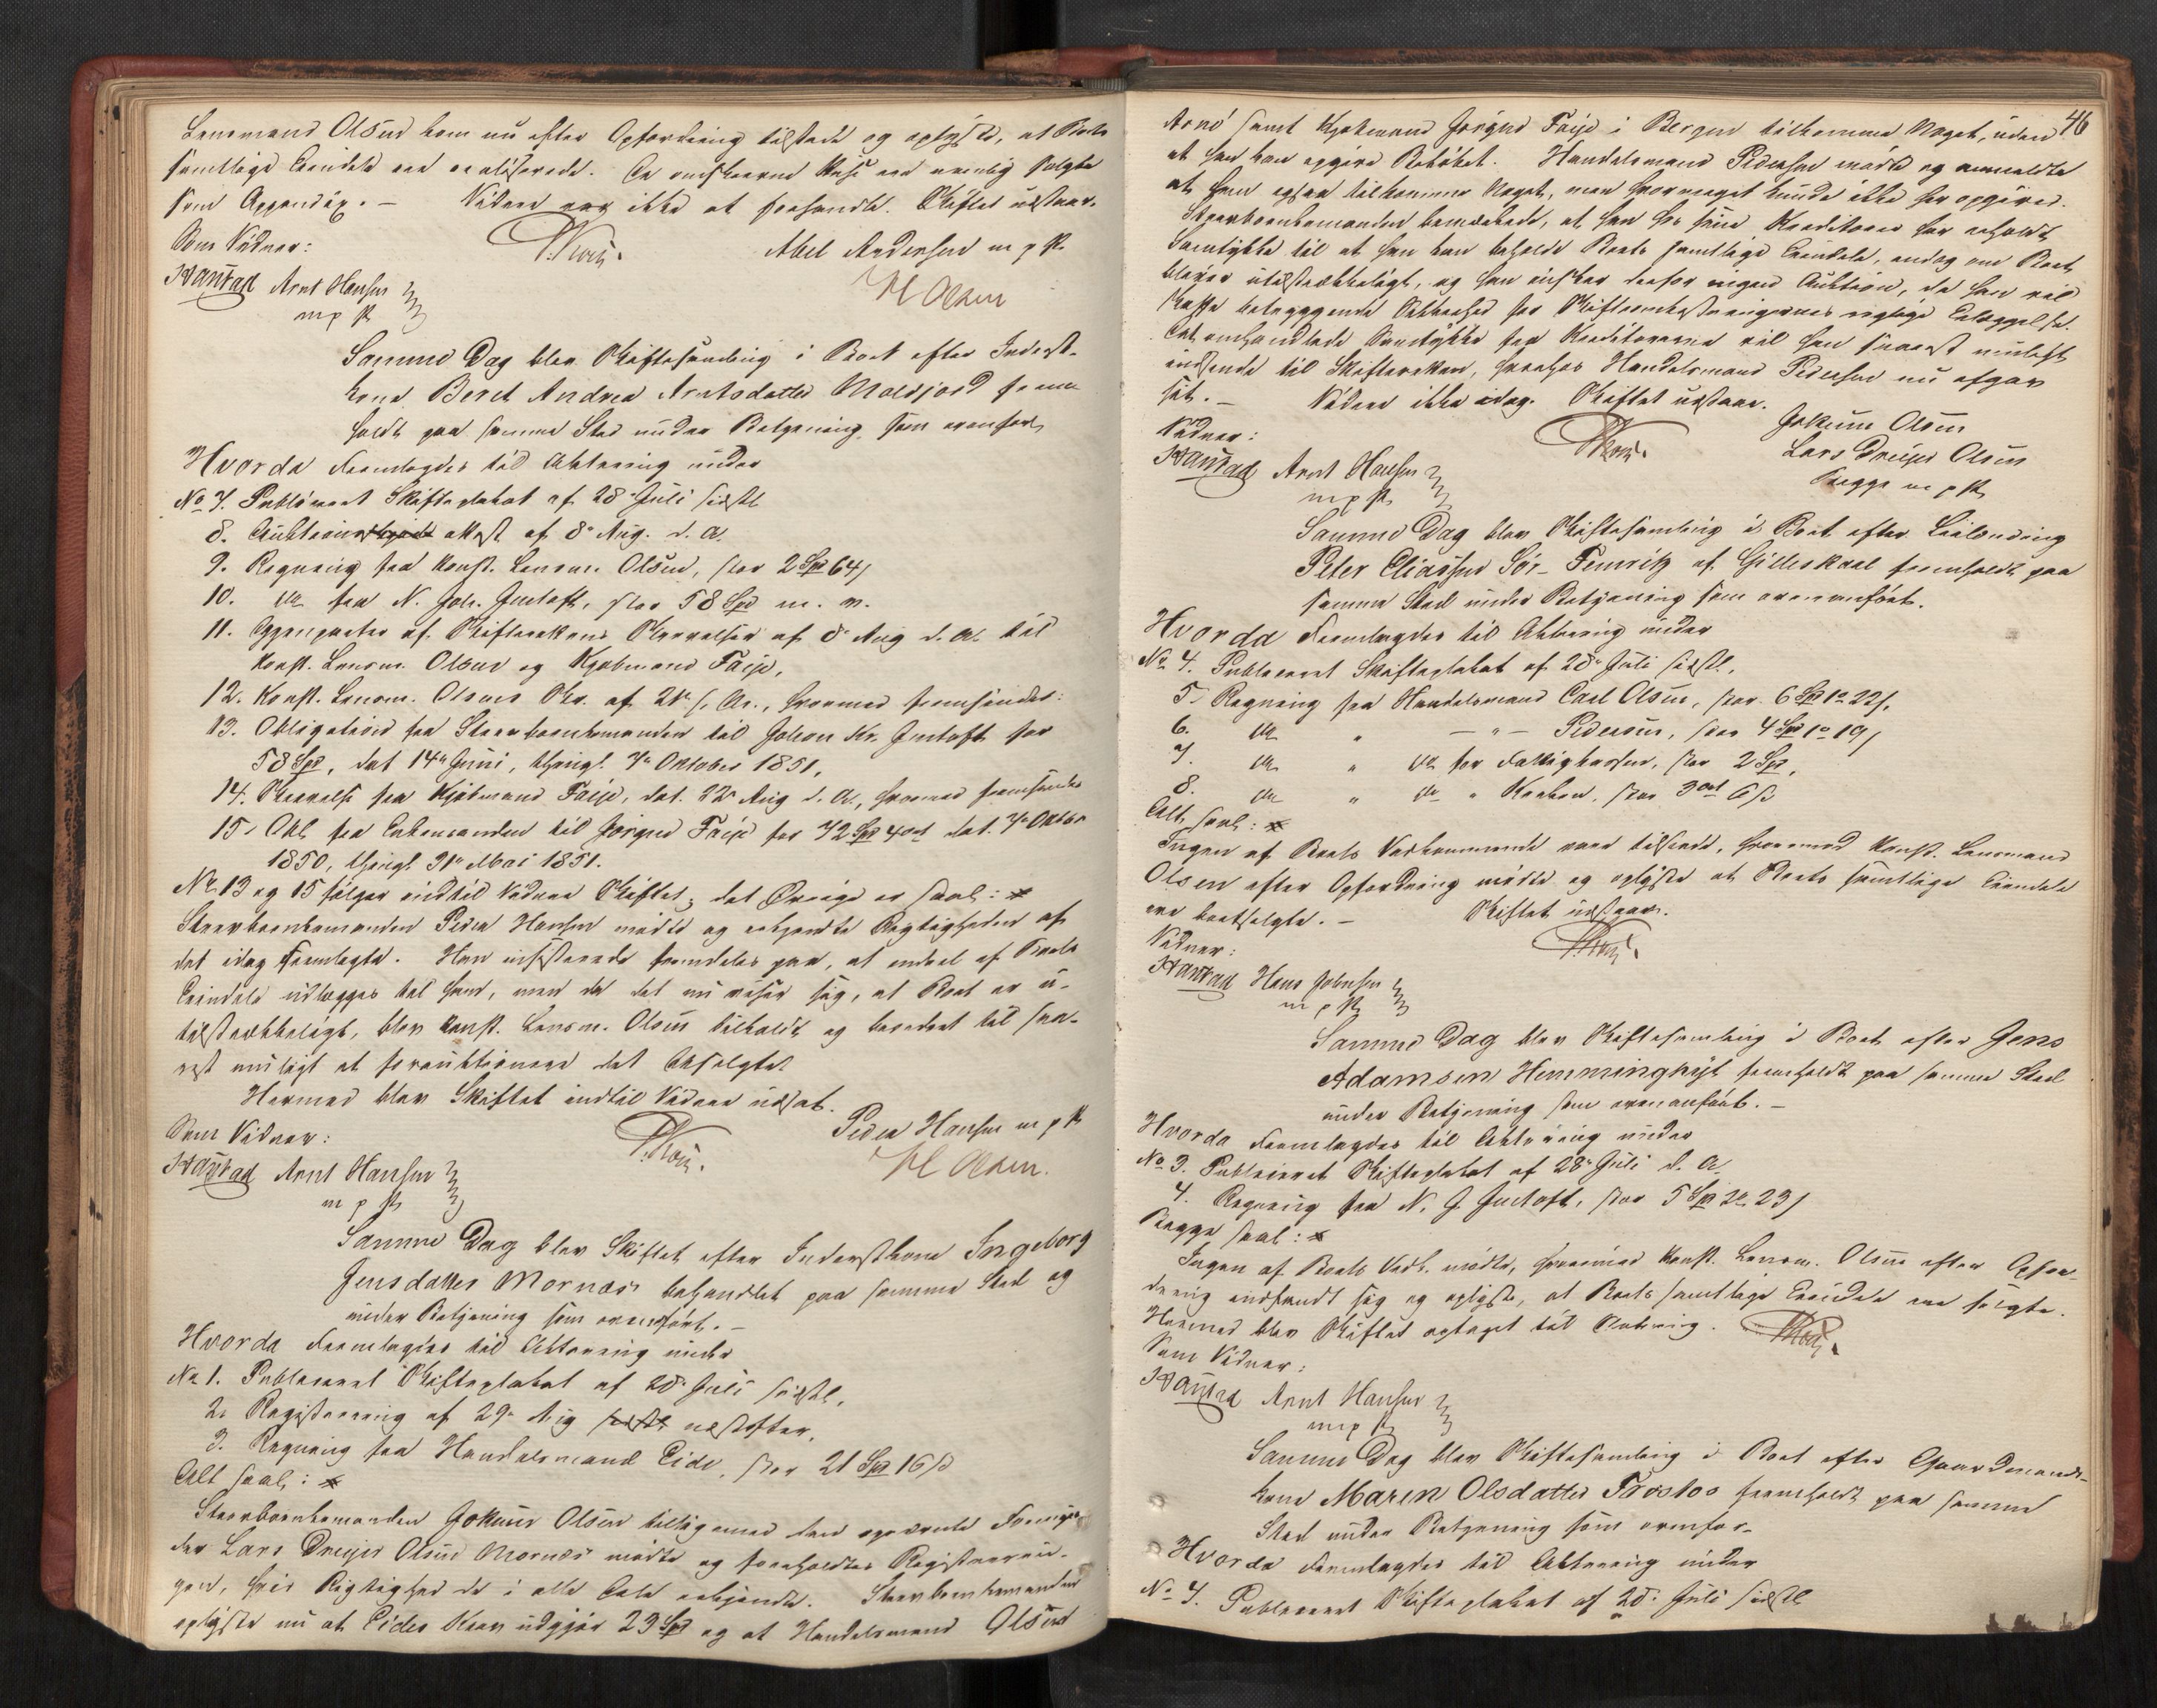 Lensmand Olsen kom nu efter Opfordring tilstede og oplyste, at Boets
samtlige Eiendele ere realiserede. De omskrevne Huse ere nemlig solgte
som Appendix. – Videre var ikke at forhandle. Skiftet udstaar.
Som Vidner:
Abel Andersen m p P.
Haustad Arnt Hansen
m p P.
Olsen
Samme Dag blev Skiftesamling i Boet efter Inderst-
kone Beret Andrea Arntsdatter Moldjord frem-
holdt paa samme Sted under Betjening som ovenført
Hvorda Fremlagdes til Aktering under
No 7. Publiceret Skifteplakat af 28de Juli sidstl
8. Auktions attest af 8de Aug. d. A.
9. Regning fra Konst. Lensm. Olsen, stor 2 Spd 64 s
10. do fra N. Joh. Jentoft, stor 58 Spd m. v.
11. Gjenparter af Skifterettens Skrivelser af 8de Aug d. A. til
Konst. Lensm. Olsen og Kjøbmand Faije.
12. Konst. Lensm. Olsens Skr. af 21de s. A., hvormed fremsendes:
13. Obligation fra Stervboenkemanden til Johan Kr. Jentoft for
58 Spd, dat 14de Juni, thingl. 7de Oktober 1851.
14. Skrivelse fra Kjøbmand Faije, dat. 22de Aug d. A., hvormed fremsendes
15. Obl. fra Enkemanden til Jørgen Faije for 72 Spd 4 ort dat. 7de Oktbr
1850, thingl. 31te Mai 1851.
No 13 og 15 følger indtil videre Skiftet; det Øvrige er saal:
Stervboenkemanden Peder Hansen mødte og erkjendte Rigtigheden af
det idag Fremlagte. Han insisterede fremdeles paa, at endeel af Boets
Eiendele udlægges til ham, men da det nu viser sig, at Boet er u-
tilstrækkeligt, blev Konst. Lensm. Olsen tilholdt og beordret til sna-
rest muligt at forauktionere det Usolgte.
Hermed blev Skiftet indtil Videre udsat.
Som Vidner:
Peder Hansen m p P
Haustad Arnt Hansen
m p P
Olsen.
Samme Dag blev Skiftet efter Inderstkone Ingeborg
Jensdatter Mornæs behandlet paa samme Sted og
under Betjening som ovenført. –
Hvorda Fremlagdes til Aktering under
No 1. Publiceret Skifteplakat af 28de Juli sidstl.
2. Registrering af 29de Aug næstefter.
3. Regning fra Handelsmand Eide, stor 21 Spd 16 s
Alt saal:
Stervboenkemanden Jokum Olsen tilligemed den opnævnte Formyn-
der Lars Dreyer Olsen Mornæs mødte og foreholdtes Registrerin-
gen, hvis Rigtighed de i alle Dele erkjendte. Stervboenkemanden
oplyste nu at Eides Krav udgjør 23 Spd og at Handelsmand Olsen
46
Arnø samt Kjøbmand Jørgen Faije i Bergen tilkomme Noget, uden
at han kan opgive Beløbet. Handelsmand Pedersen mødte og anmeldte
at han ogsaa tilkommer Noget, men hvormeget kunde ikke her opgives.
Stervboenkemanden bemærkede, at han hos sine Kreditorer har erholdt
Samtykke til at han kan beholde Boets samtlige Eiendele, endog om Boet
bliver utilstrækkeligt, og han ønsker derfor ingen Auktion, da han vil
skaffe betryggende Sikkerhed for Skifteomkostningernes rigtige Erlæggelse.
Det omhandlede Samtykke fra Kreditorerne vil han snarest muligst
indsende til Skifteretten, hvorhos Handelsmand Pedersen nu afgav
sit. – Videre ikke idag. Skiftet udstaar.
Jokum Olsen
Vidner:
Lars Dreyer Olsen
Haustad Arnt Hansen
m p P.
Begge m p P.
Samme Dag blev Skiftesamling i Boet efter Leilænding
Peter Eliassen Sør-Femris af Gilleskaal fremholdt paa
samme Sted under Betjening som ovenanført.
Hvorda Fremlagdes til Aktering under
No 4. Publiceret Skifteplakat af 28de Juli sidstl.
5. Regning fra Handelsmand Carl Olsen, stor 6 Spd 1 o 22 s.
6. do " – " – Pedersen, stor 4 Spd 1 o 19 s
7. do " do for Fattigkassen, stor 2 Spd,
8. do " do " , stor 3 ort 6 s
Alt saal:
Ingen af Boets Vedkommende vare tilstede, hvorimod Konst. Lensmand
Olsen efter Opfordring mødte og oplyste at Boets samtlige Eiendele
ere bortsolgte. – Skiftet udstaar.
Vidner:
Haustad Hans Johnsen
m p P.
Samme Dag blev Skiftesamling i Boet efter Jens
Adamsen Hemminghyt fremholdt paa samme Sted
under Betjening som ovenanført. –
Hvorda Fremlagdes til Aktering under
No 3. Publiceret Skifteplakat af 28de Juli d. A.
4. Regning fra N. J. Jentoft, stor 5 Spd 2 o 23 s
Begge saal:
Ingen af Boets Vedk. mødte, hvorimod Konst. Lensm. Olsen efter Opfor-
dring indfandt sig og oplyste, at Boets samtlige Eiendele ere solgte.
Hermed blev Skiftet optaget til Slutning.
Som Vidner:
Haustad Arnt Hansen
m p P
Samme Dag blev Skiftesamling i Boet efter Gaardmands-
kone Maren Olsdatter Fóóstos fremholdt paa samme
Sted under Betjening som ovenfor –
Hvorda Fremlagdes til Aktering under
No 7. Publiceret Skifteplakat af 28de Juli sidstl